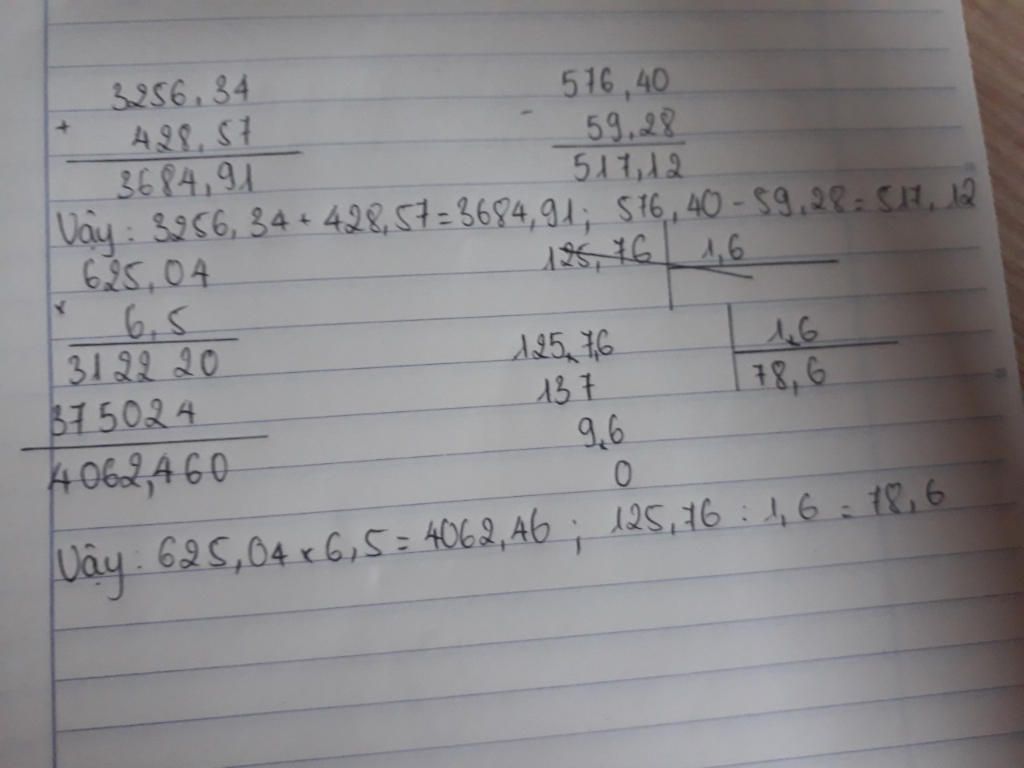 3256,34
+
428,57
3684,91
576,40
-
59,28
517,12
Vậy: 3256,34 + 428,57 = 3684,91; 576,40 - 59,28 = 517,12
625,04
x
6,5
312220
375024
4062,460
125,76 1,6
125,7,6 1,6
137 78,6
9,6
0
Vậy: 625,04 x 6,5 = 4062,46 ; 125,76 : 1,6 = 78,6